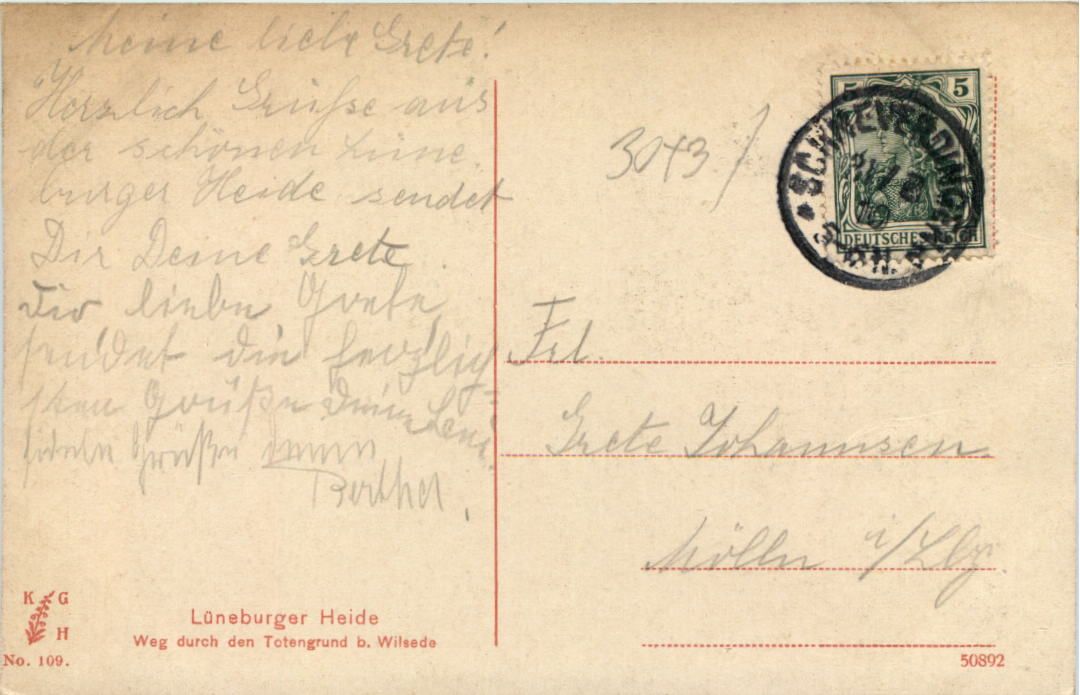 Meine liebe Grete!
Herzlich Grüße aus
der schönen Lüne
burger Heide sendet
Dir Deine Grete.
Dir liebe Grete
sendet die herzlich
sten Grüße Deine Leni.
fidele Grüße
Berthel.
3043
5 5
SCHNEVERDINGEN
DEUTSCHES REICH
Frl.
Grete Johannsen
Mölln i/Lbg.
K G
H
No. 109.
Lüneburger Heide
Weg durch den Totengrund b. Wilsede
50892